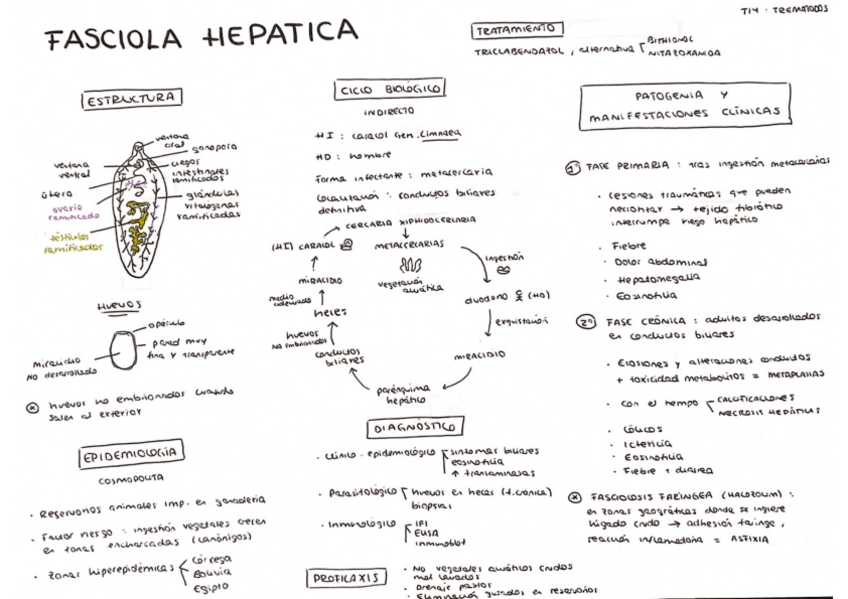 T14 : TREMATODOS
FASCIOLA HEPATICA
TRATAMIENTO
TRICLABENDAZOL, alternativa
BITHIONOL
NITAZOXANIDA
ESTRUCTURA
ventosa
oral
gonoporo
ciegos
intestinales
ramificados
ventosa
ventral
útero
ovario
ramificado
testículos
ramificados
glándulas
vitelógenas
ramificadas
HUEVOS
opérculo
pared muy
fina y transparente
miracidio
NO desarrollado
huevos no embrionados cuando
salen al exterior
EPIDEMIOLOGÍA
COSMOPOLITA
· Reservorios animales imp. en ganadería
· Factor riesgo : ingestión vegetales crecen
en zonas encharcadas (canónigos)
· Zonas hiperepidémicas
Córcega
Bolivia
Egipto
CICLO BIOLÓGICO
INDIRECTO
HI : caracol Gen. Limnaea
HD : hombre
Forma infectante : metacercaria
Localización : conductos biliares
definitiva
CERCARIA XIPHIDOCERCARIA
(HI) CARACOL
METACERCARIAS
vegetación
acuática
ingestión
duodeno (HD)
exquistación
MIRACIDIO
parénquima
hepático
conductos
biliares
huevos
NO embrionados
heces
medio
adecuado
MIRACIDIO
DIAGNÓSTICO
· Clínico-epidemiológico
síntomas biliares
eosinofilia
↑ transaminasas
· Parasitológico
huevos en heces (f. crónica)
biopsias
· Inmunológico
IFI
ELISA
inmunoblot
PROFILAXIS
· No vegetales acuáticos crudos
mal lavados
· Drenaje pastos
· Eliminación gusanos en reservorios
PATOGENIA Y
MANIFESTACIONES CLÍNICAS
1º FASE PRIMARIA : tras ingestión metacercarias
· Lesiones traumáticas que pueden
necrosar → tejido fibrótico
interrumpe riego hepático
· Fiebre
· Dolor abdominal
· Hepatomegalia
· Eosinofilia
2º FASE CRÓNICA : adultos desarrollados
en conductos biliares
· Erosiones y alteraciones conductos
+ toxicidad metabolitos = METAPLASIAS
· Con el tiempo
CALCIFICACIONES
NECROSIS HEPÁTICAS
· Cólicos
· Ictericia
· Eosinofilia
· Fiebre + diarrea
FASCIOLOSIS FARÍNGEA (HALZOUM) :
en zonas geográficas donde se ingiere
hígado crudo → adhesión faringe,
reacción inflamatoria = ASFIXIA